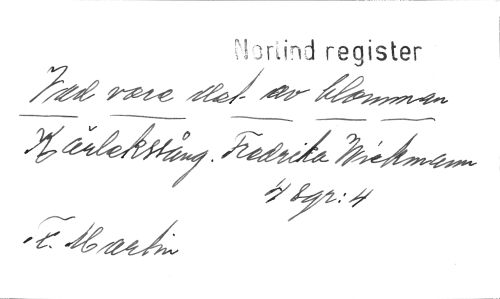 Norlind register
Vad vore det av blomman
Kärlekssång. Fredrika Wickmann
4 sgr: 4
F. Martin